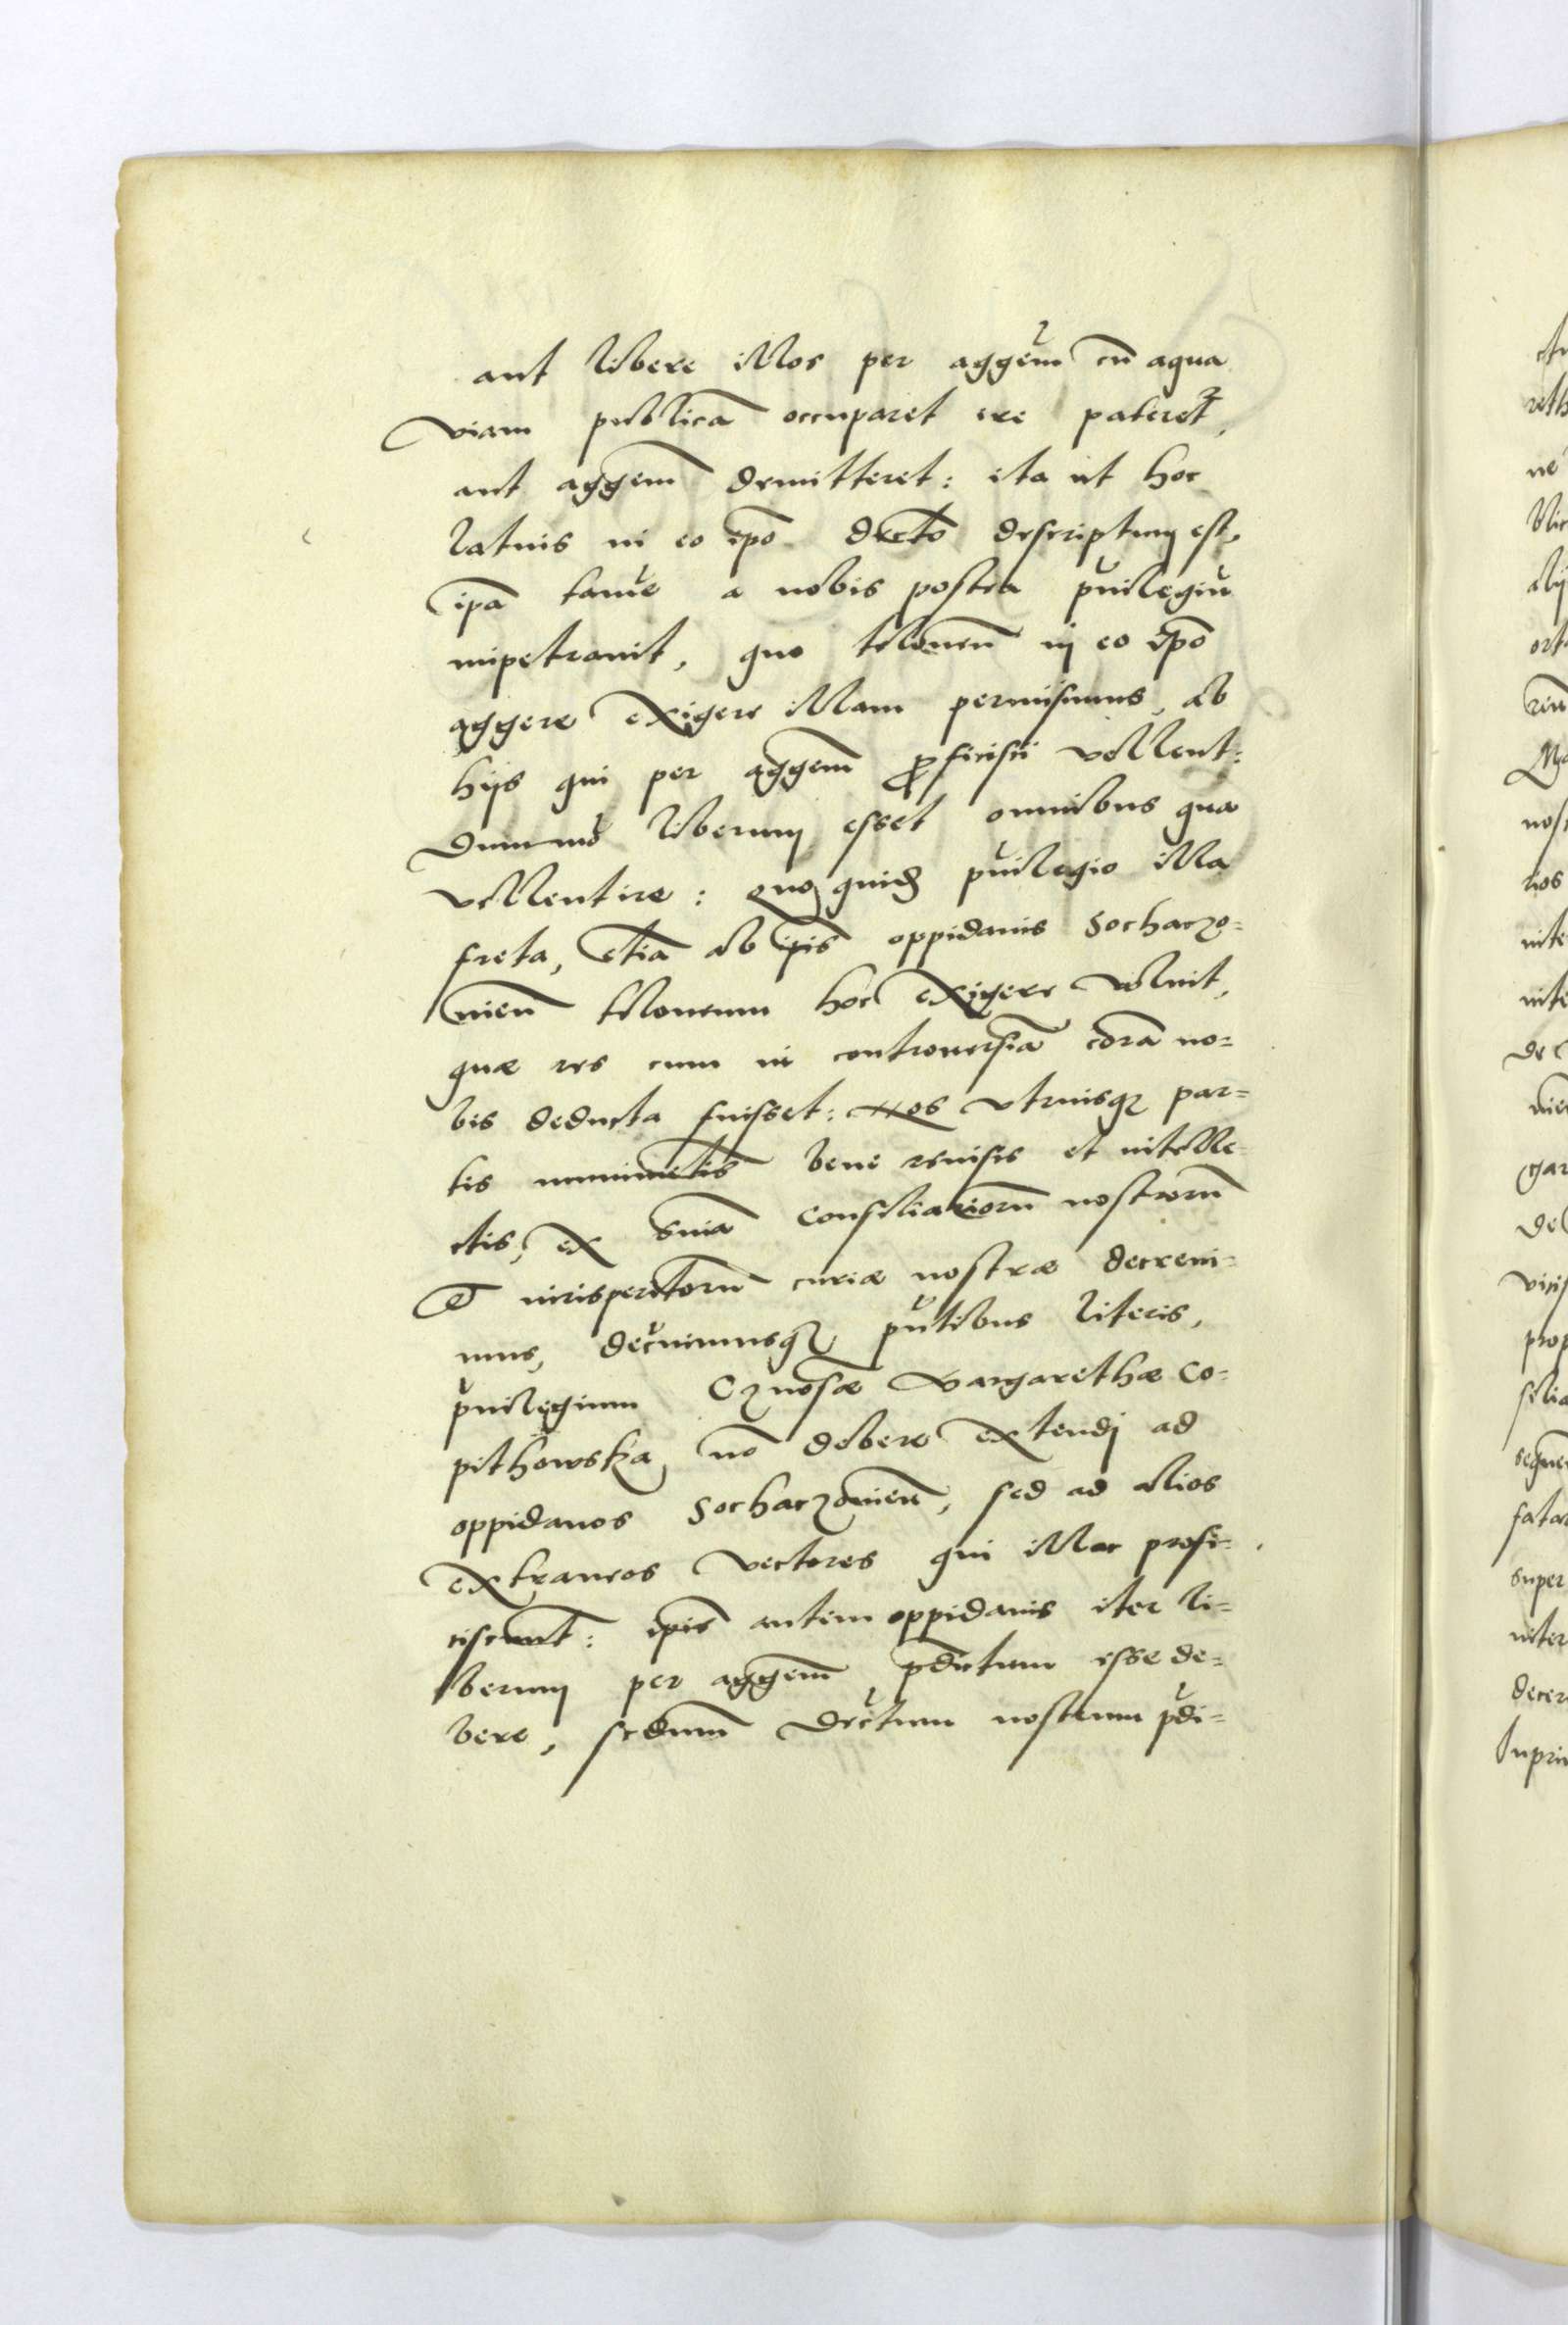 aut libere illos per aggem̃ cũ aqua
viam publicã occuparet ire pateret̃,
aut aggem̃ demitteret: ita ut hoc
latius in eo ip̃o decr̃to descriptum est,
ip̃a tamẽ a nobis postea p̃uilegiũ
impetrauit, quo teloneũ in eo ip̃o
aggere exigere illam permisimus, ab
hijs qui per aggem̃ ꝓficisci vellent:
dummõ liberum esset omnibus qua
vellent ire: quo quidẽ p̃uilegio illa
freta, etiã ab ip̃is oppidanis Sochaczo=
uien̄ teloneum hoc exigere voluit,
quæ res cum in controuersiã corã no=
bis deducta fuisset: Nos vtriusqꝫ par=
tis munimẽtis bene reuisis et intelle=
ctis, ex s̃nia Consiliariorũ nostrorũ
et iurisperitorũ curiæ nostræ decreui=
mus, decr̃nimusqꝫ p̃ntibus literis,
p̃uilegium G̃nosæ Margarethæ Co=
pithowska, nõ debere extendj ad
oppidanos Sochaczouien̄, sed ad alios
extraneos vectores qui illac profi=
ciscunt̃: ip̃is autem oppidanis iter li=
berum per aggem̃ p̃dictum esse de=
bere, secdum̃ decr̃tum nostrum p̃di=